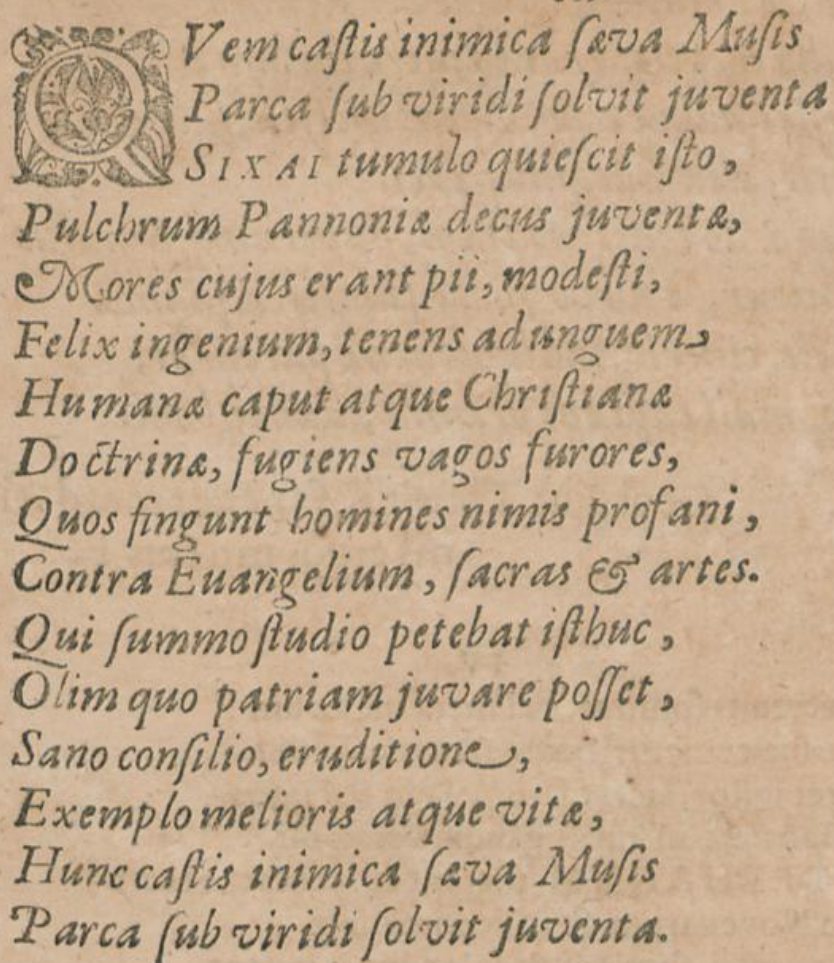 QVem castis inimica sæva Musis
Parca sub viridi solvit juventa
SIXAI tumulo quiescit isto,
Pulchrum Pannoniæ decus juventæ,
Mores cujus erant pii, modesti,
Felix ingenium, tenens ad unguem
Humanæ caput atque Christianæ
Doctrinæ, fugiens vagos furores,
Quos fingunt homines nimis profani,
Contra Euangelium, sacras & artes.
Qui summo studio petebat isthuc,
Olim quo patriam juvare posset,
Sano consilio, eruditione,
Exemplo melioris atque vitæ,
Hunc castis inimica sæva Musis
Parca sub viridi solvit juventa.